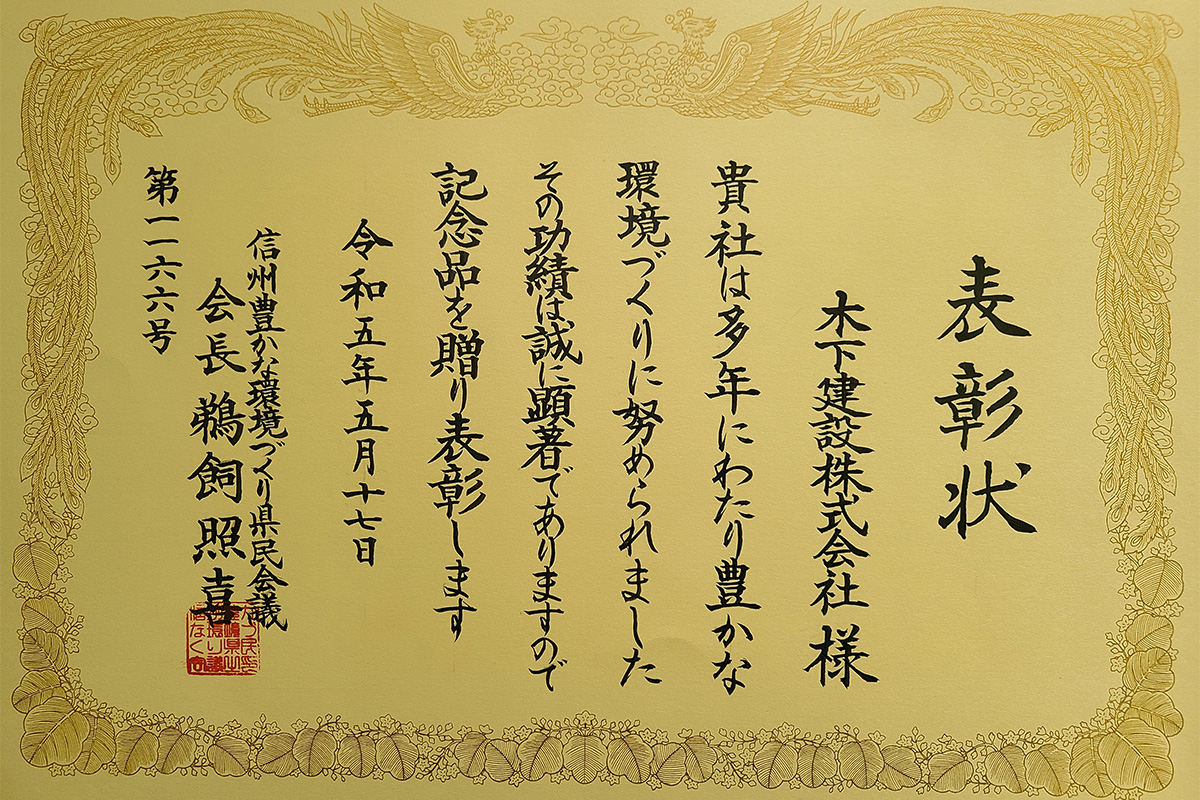 表彰状
木下建設株式会社 様
貴社は多年にわたり豊かな
環境づくりに努められました
その功績は誠に顕著でありますので
記念品を贈り表彰します
令和五年五月十七日
信州豊かな環境づくり県民会議
会長 鵜飼照喜
第一一六六号